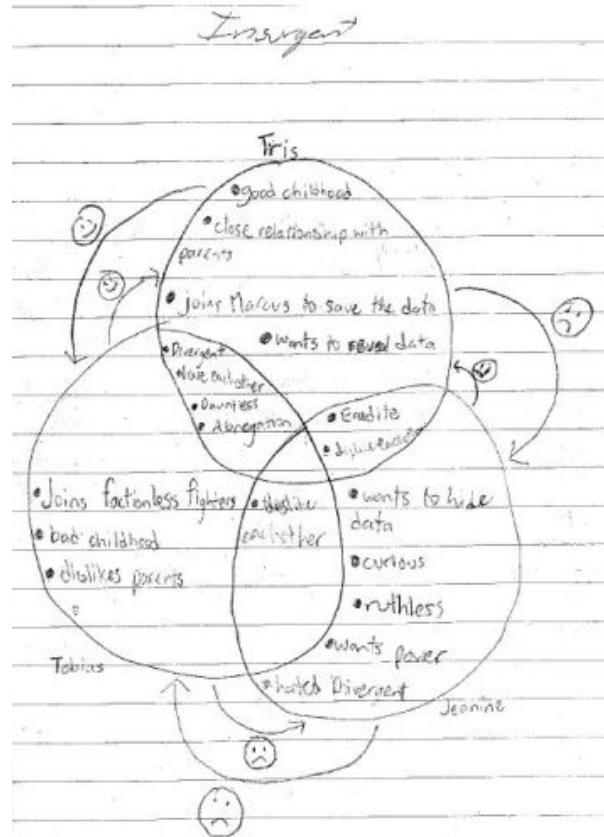 Insurgent
Tris
•good childhood
•close relationship with
parents
•joins Marcus to save the data
•wants to data
•Divergent
•love eachother
•Dauntless
•Abnegation
•Erudite
•dislike
•Joins factionless fighters
•bad childhood
•dislikes parents
•dislike
eachother
•wants to hide
data
•curious
•ruthless
•wants power
•hated Divergent
Tobias
Jeanine